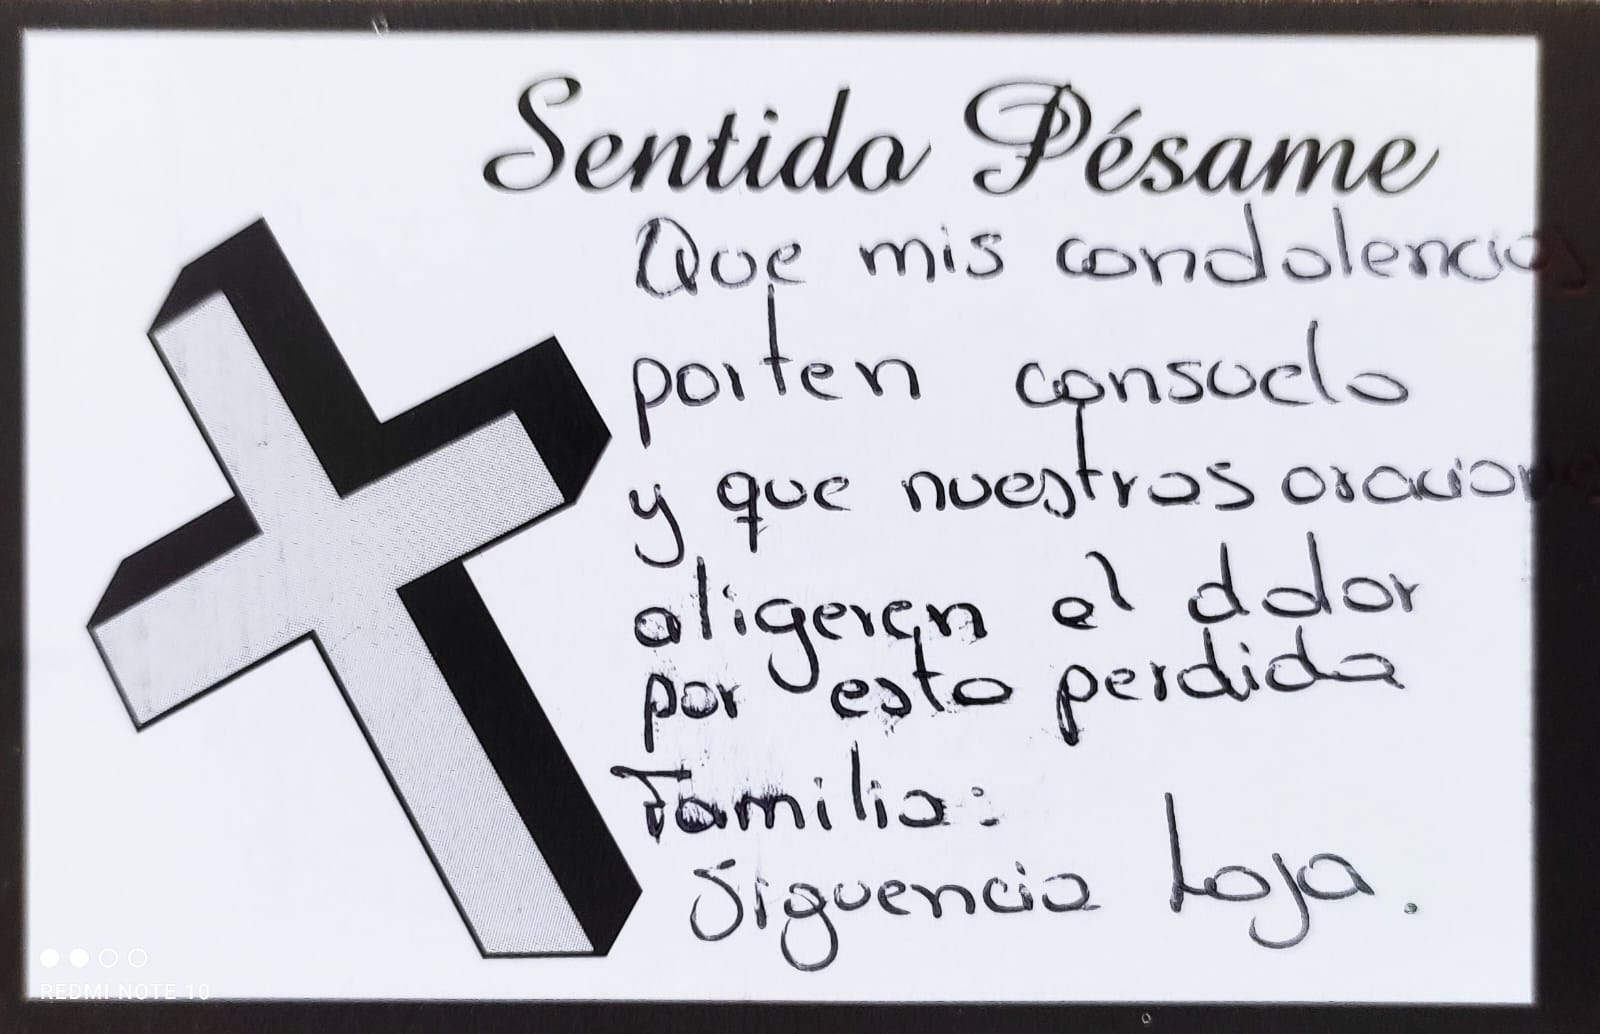 Sentido Pésame
Que mis condolencias
porten consuelo
y que nuestras oraciones
aligeren el dolor
por esta perdida
Familia:
Siguencia Loja.
REDMI NOTE 10